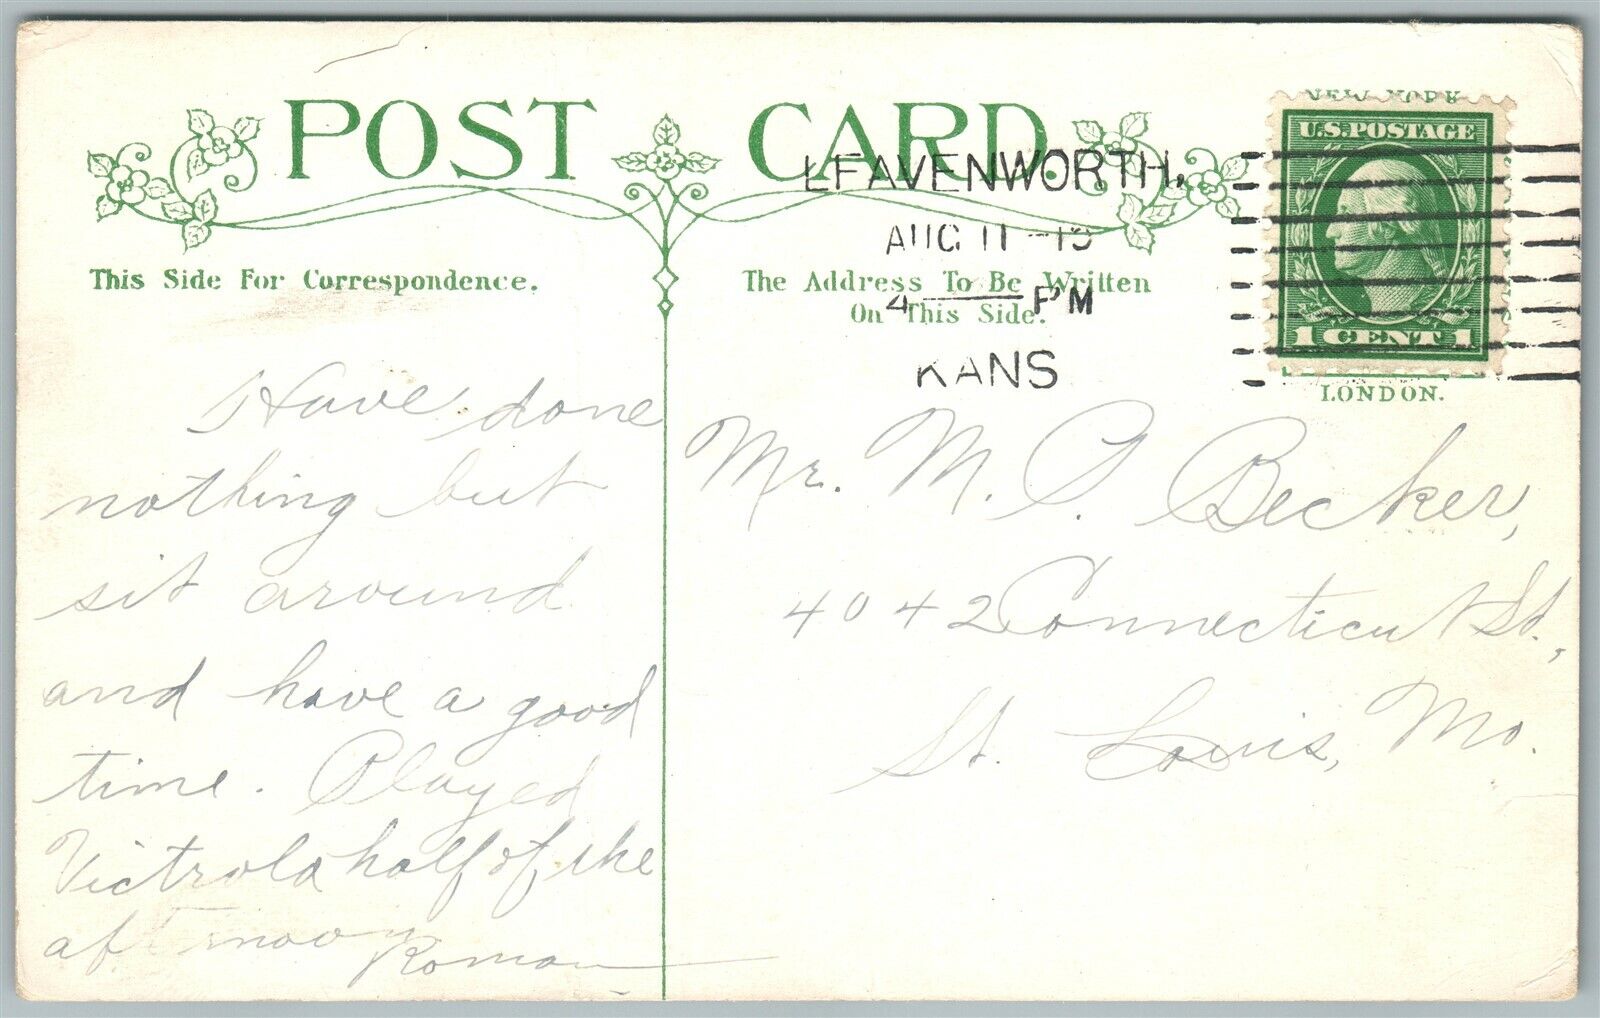 POST CARD.
NEW YORK
U.S. POSTAGE
1 CENT 1
LONDON.
LEAVENWORTH,
AUG 11
4 PM
KANS
This Side For Correspondence.
The Address To Be Written
On This Side.
Have done
nothing but
sit around
and have a good
time. Played
Victrola half of the
afternoon
Roman
Mr. M. P. Becker,
4042 Connecticut St.,
St. Louis, Mo.